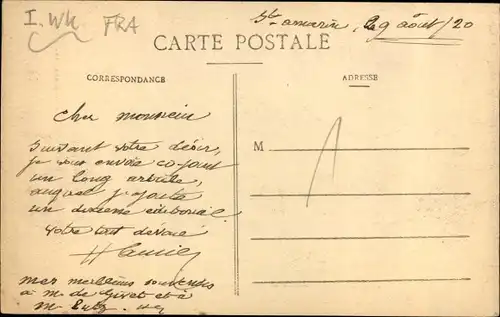 I. WK FRA
St amarin, 29 août/20
CARTE POSTALE
CORRESPONDANCE
ADRESSE
Cher monsieur
Suivant votre désir,
je vous envoie ci-joint
un long article,
auquel j'ajoute
un dixième éditorial.
Votre tout dévoué
M
mes meilleurs souvenirs
à M. de Givet et à
M.